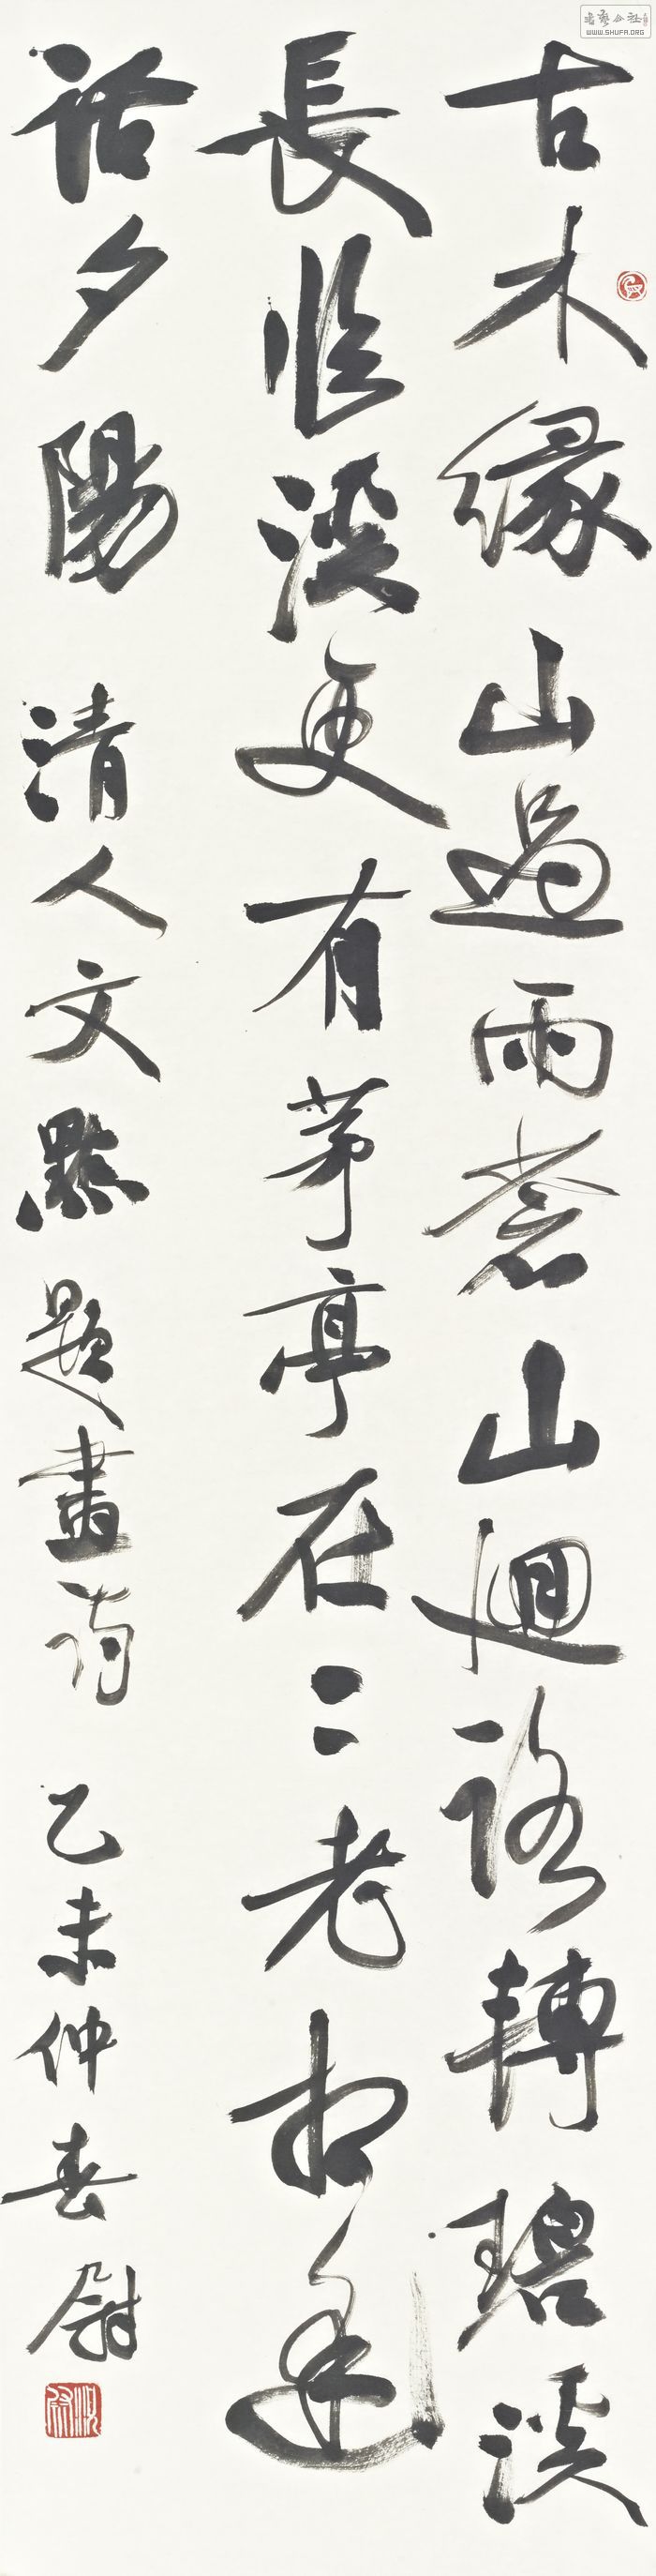 古木緣山過雨蒼山迴路轉碧溪
長臨溪更有茅亭在二老相逢
話夕陽
清人文點題畫詩
乙未仲春尉
WWW.SHUFA.ORG